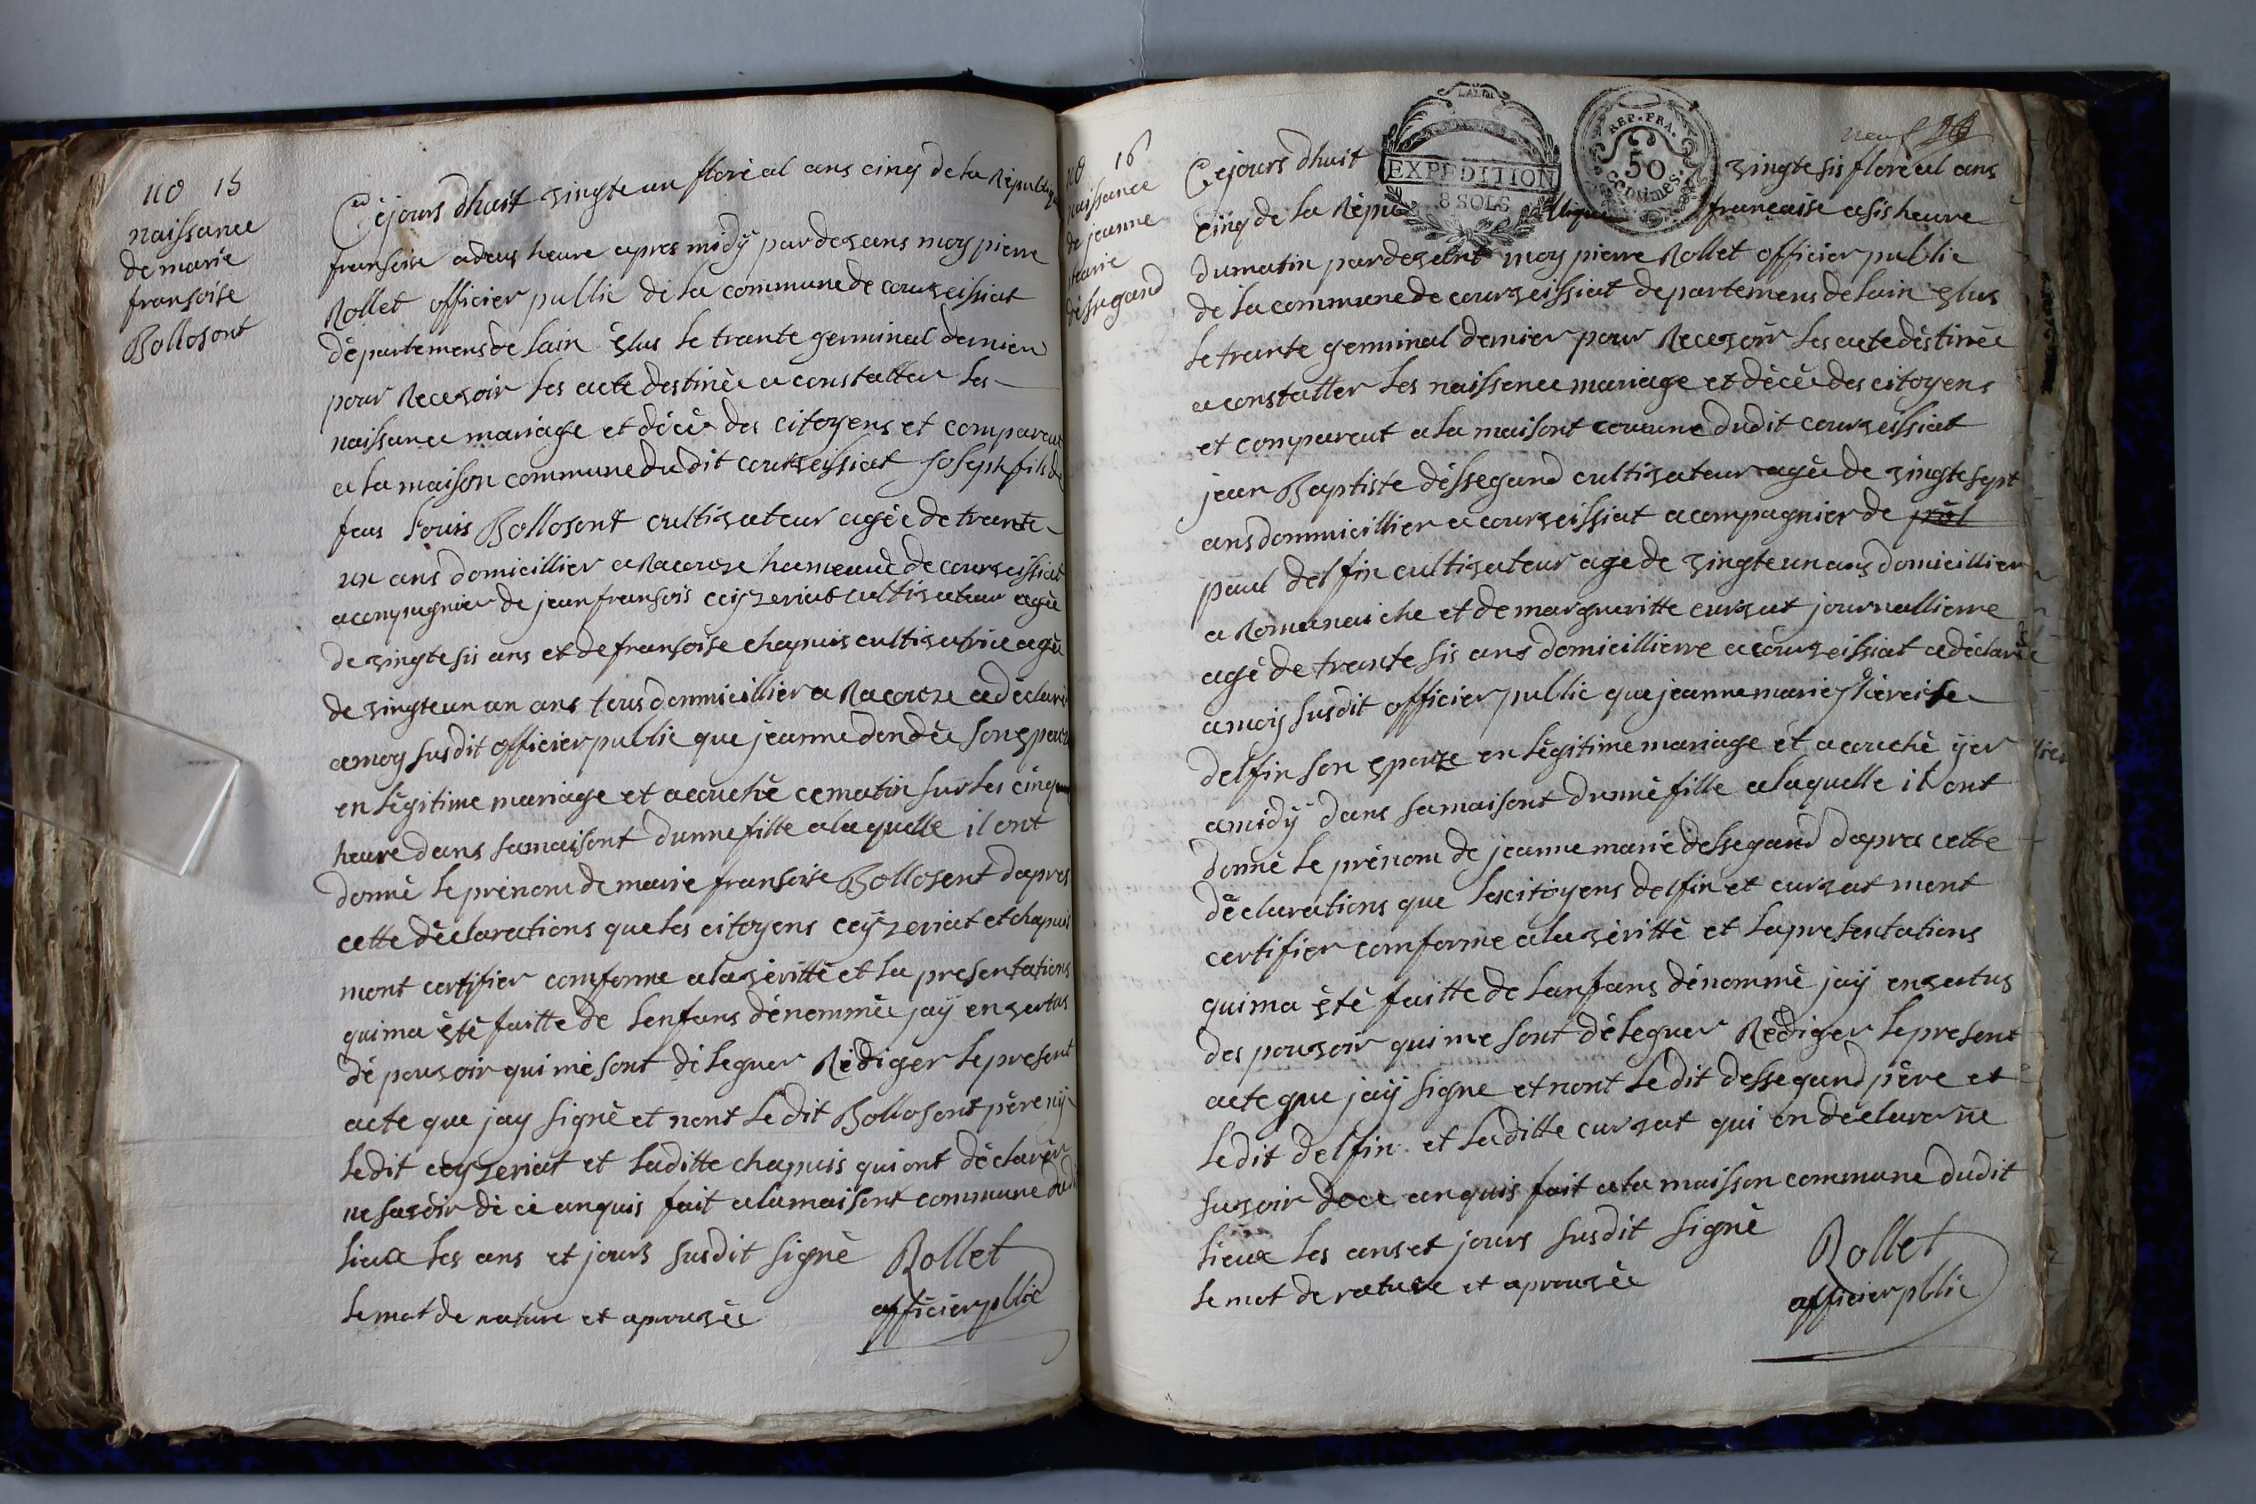 no 15
naissance
de marie
fransoise
Bollosont
Cejours dhuit vingte un floréal ans cinq de la Républiq
fransoise a deus heure apres midÿ pardevans moy pierre
Rollet officier public de la commune de courveissiat
départemens de lain élus le trante germinal dernier
pour Recevoir les acte destinée a constatter les
naissance mariage et décè des citoyens et compareut
a la maison commune dudit courveissiat Joseph fils de
feus Louis Bollosont cultivateur agée de trante
un ans domicillier a Racouze hameaud de courveissiat
acompagnier de jean fransois ceyzeriat cultivateur agée
de vingte sis ans et de fransoise chapuis cultivatrice agée
de vingte un an ans tous dommicillier a Racouze a déclaré
a moy susdit officier public que jeanne dondée son epouze
en légitime mariage et acouché ce matin sur les cinq
heure dans sa maisont dunne fille a laquelle il ont
donné le prénom de marie fransoise Bollosont dapres
cette déclarations que les citoyens ceyzeriat et chapuis
mont certifier comforme a la véritté et la presentations
qui ma été faitte de lenfans dénommée jaÿ en vertus
dé pouvoir qui me sont déleguer Rédiger le present
acte que jay signé et nont ledit Bollosont père nÿ
ledit ceyzeriat et laditte chapuis qui ont déclarér
ne savoir de ce anquis fait a la maisont commune dudit
lieux les ans et jours susdit signé Rollet
le mot de rature et aprouvée officier pblic
neuf
no 16
naissance
de jeanne
marie
dessegand
Cejours dhuit vingte sis floréal ans
cinq de la République francaise a sis heure
du matin pardevant moy pierre Rollet officier public
de la commune de courveissiat departemens de lain élus
le trante germinal dernier pour Recevoir les acte déstinée
a constatter les naissence mariage et décè des citoyens
et compareut a la maisont comune dudit courveissiat
jean Baptiste déssegand cultivateur agée de vingte sept
ans dommicillier a courveissiat acompagnier de pol
paul delfin cultivateur age de vingte un ans domicillier
a Romanaiche et de margueritte curvat journallierre
agé de trante sis ans domicillierre a courveissiat a déclarée
a moy susdit officier public que jeanne marie
delfin son epouze en légitime mariage et acouché ÿer
a midÿ dans sa maisont dunne fille a laquelle il ont
donné le prénom de jeanne marie dessegand dapres cette
déclarations que les citoyens delfin et curvat mont
certifier comforme a la véritté et la presentations
qui ma été faitte de lanfans dénommé jaÿ en vertus
des pouvoir qui me sont déleguer Rédiger le present
acte que jaÿ signe et nont ledit dessegand père et
ledit delfin et laditte curvat qui en déclarer ne
savoir de ce anquis fait a la maisson commune dudit
lieux les ans et jours susdit signé Rollet
le mot de rature et aprouvée officier pblic
LA LOI
EXPEDITION
8 SOLS
REP. FRA.
50
CENTIMES